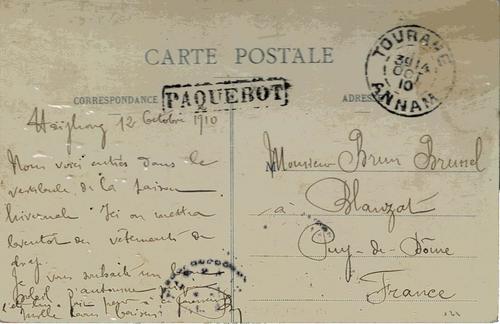 CARTE POSTALE
CORRESPONDANCE
PAQUEBOT
ADRES
TOURANE
30 14
OCT
10
ANNAM
Haiphong 12 Octobre 1910
Nous voici entrés dans le
vestibule de la saison
hivernale Ici on mettra
bientôt des vêtements de
drap.
Je vous
soleil d'automne
mille bons baisers
Monsieur Brun Brunel
à Blanzat
Puy-de-Dôme
France